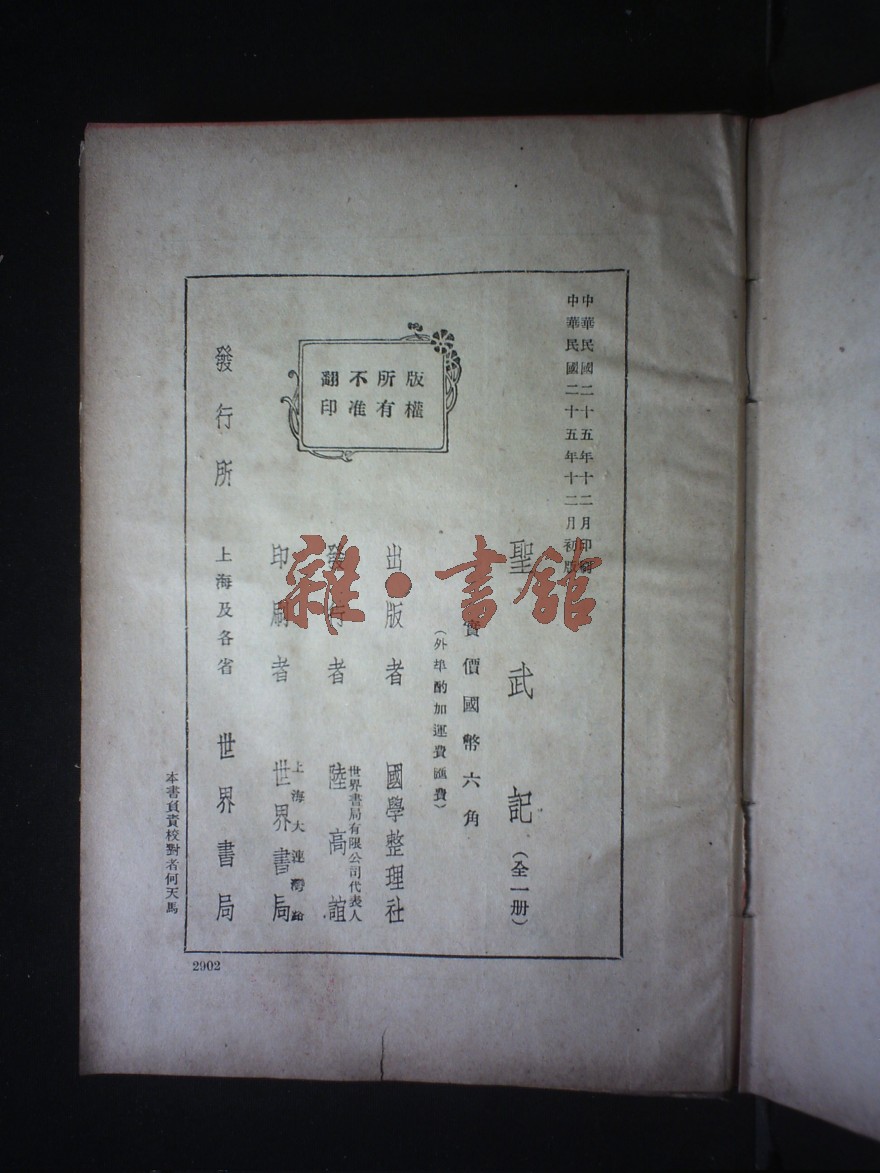 中華民國二十五年十二月印刷
中華民國二十五年十二月初版
聖武記(全一册)
實價國幣六角
(外埠酌加運費匯費)
版權所有不准翻印
出版者 國學整理社
世界書局有限公司代表人
發行者 陸高誼
上海大連灣路
印刷者 世界書局
發行所 上海及各省 世界書局
本書負責校對者何天馬
2902
雜·書館